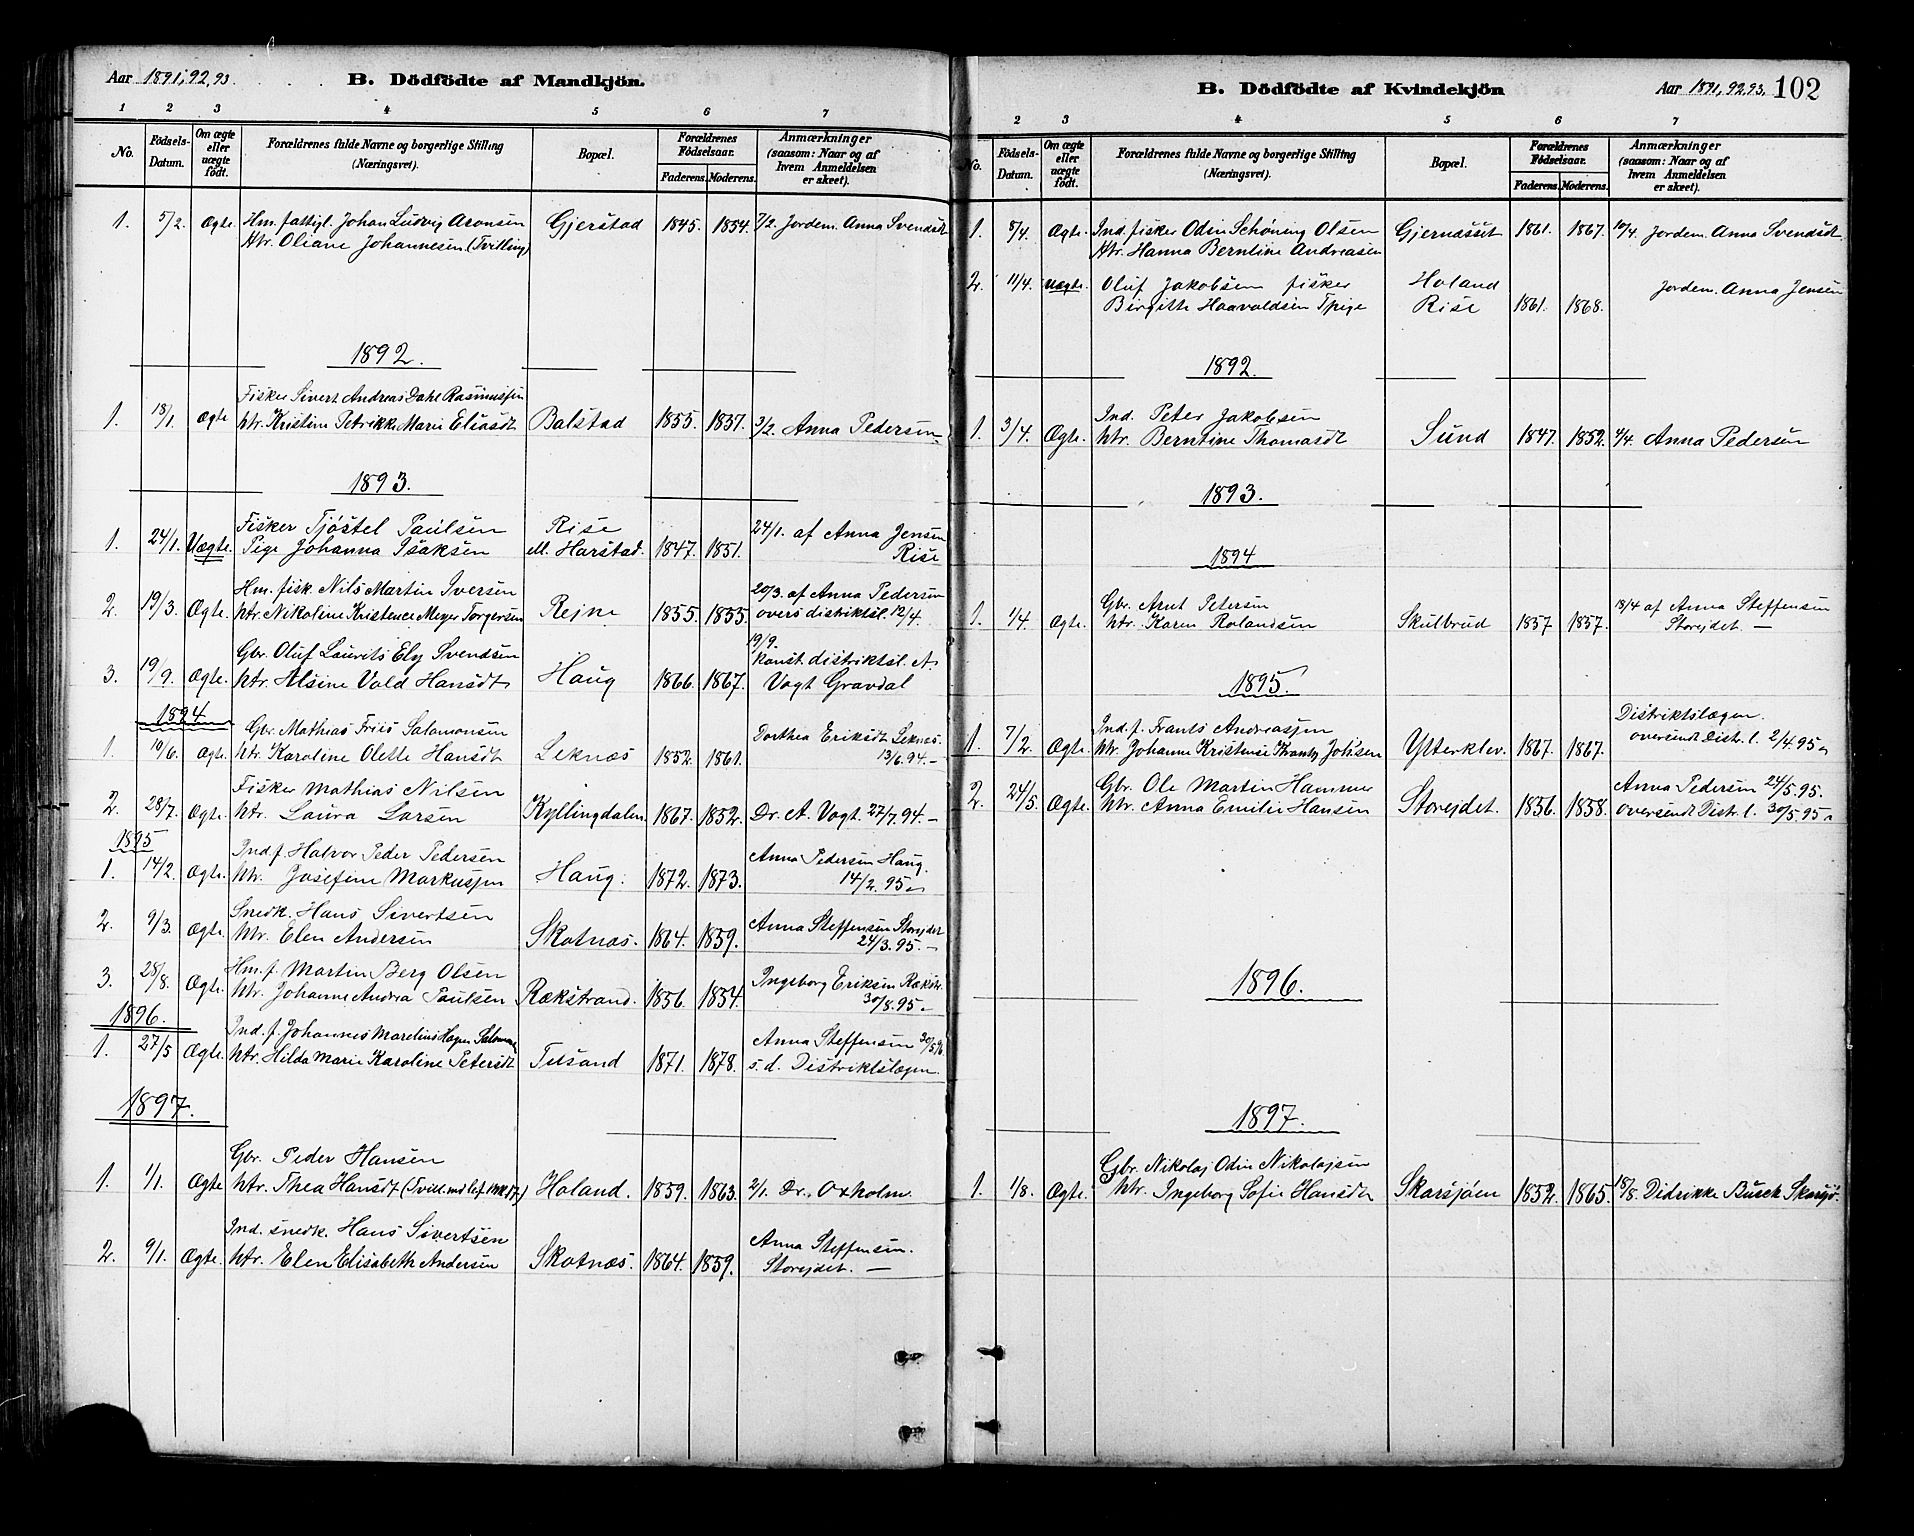 Aar 1891, 92, 93.
B. Dödfödte af Mandkjön.
1 2 3 4 5 6 7
No.
Födsels-Datum.
Om ægte eller uægte født.
Forældrenes fulde Navne og borgerlige Stilling (Næringsvei).
Bopæl.
Forældrenes Födselsaar.
Faderens. Moderens.
Anmærkninger (saasom: Naar og af hvem Anmeldelsen er skeet).
1. 5/2. Ægte Hm. fattigl. Johan Ludvig Aronsen Gjerstad 1845. 1854. 7/2. Jordem. Anna Svendsdt
Htr. Oliane Johannesen (Tvilling)
1892.
Fisker Sivert Andreas Dahl Rasmussen
1. 18/1. Ægte htr. Kristine Petrikke Marie Eliasdt Balstad 1855. 1837. 3/2. Anna Pedersen
1893.
Fisker Tjøstel Paulsen Rise 24/1. af Anna Jensen
1. 24/1. Uægte. Pige Johanna Isaksen ell. Harstad. 1847. 1851. Rise
Hm. fisk. Nils Martin Iversen 20/3. af Anna Pedersen
2. 19/3. Ægte. htr. Nikoline Kristence Meyer Torgersen Rejne 1855. 1855. overs distriktsl. 12/4.
Gbr. Oluf Laurits Ely Svendsen 19/9. konst. distriktsl. A.
3. 19/9. Ægte. htr. Alsine Vold Hansdt Haug 1866. 1867. Vogt Gravdal
1894
Gbr. Mathias Friis Salomonsen Dorthea Eriksdt Leknæs.
1. 10/6. Ægte htr. Karoline Olette Hansdt Leknæs 1852. 1861. 13/6.94.-
Fisker Mathias Nilsen
2. 28/7. Ægte. htr. Laura Larsen Kyllingdalen 1867. 1852. Dr. A. Vogt. 27/7.94.-
1895
Ind. f. Halvor Peder Pedersen Anna Pedersen Haug.
1. 14/2. Ægte. htr. Josefine Markussen Haug. 1872. 1873. 14/2. 95
Snedk. Hans Sivertsen Anna Steffensen Storejdet
2. 9/3. Ægte. htr. Elen Andersen Skotnæs. 1864. 1859. 24/3. 95.-
Hm. f. Martin Berg Olsen Ingeborg Eriksen Rækstr.
3. 28/8. Ægte. htr. Johanne Andrea Paulsen Rækstrand. 1856. 1854. 30/8.95.
1896.
Ind. f. Johannes Marelius Hagen Salomon Anna Steffensen 30/5.96
1. 27/5 Ægte. htr. Hilda Marie Karoline Petersdt Tusand 1871. 1878. s. d. Distriktslægen.
1897.
Gbr. Peder Hansen
1. 1/1. Ægte htr. Thea Hansdt Holand. 1859. 1863. 2/1. Dr. Oxholm.
Ind. snedk. Hans Sivertsen Anna Steffensen.
2. 9/1. Ægte. htr. Elen Elisabeth Andersen Skotnæs. 1864. 1859. Storejdet. —
B. Dödfödte af Kvindekjön
Aar 1891, 92, 93. 102
1 2 3 4 5 6 7
No.
Födsels-Datum.
Om ægte eller uægte födt.
Forældrenes fulde Navne og borgerlige Stilling (Næringsvei).
Bopæl.
Forældrenes Födselsaar.
Faderens. Moderens.
Anmærkninger (saasom: Naar og af hvem Anmeldelsen er skeet).
1. 8/4. Ægte. Ind. fisker Odin Schøning Olsen Gjerndsüt 1861. 1867. 10/4. Jordem. Anna Svendsdt
Htr. Hanna Berntine Andreasen
2. 11/4. Uægte. Oluf Jakobsen fisker Holand Jordem. Anna Jensen
Birgitte Haavoldsen Tpige Rise 1861. 1868.
1892.
Ind. Peter Jakobsen
1. 3/4. Ægte. htr. Berntine Thomasdt Sund 1847. 1852. 4/4. Anna Pedersen
1893.
1894
Gbr. Arnt Petersen 18/4 af Anna Steffensen
1. 1/4. Ægte. htr. Karen Rolandsen Skulbrud 1857 1857. Storejdet. —
1895.
Ind. f. Frants Andreassen Distriktslægen.
1. 7/2. Ægte. htr. Johanne Kristense Krantz Johsen Ytterklev. 1867. 1867. oversendt Distr. l. 2/4.95
Gbr. Ole Martin Hammer Anna Pedersen 24/5.95.
2. 24/5. Ægte. htr. Anna Emilie Hansen Storejdet. 1856. 1858. oversendt Distr. l. 30/5.95
1896.
1897.
Gbr. Nikolaj Odin Nikolajsen
1. 1/8. Ægte. htr. Ingeborg Sofie Hansdr Skarsjøen 1852. 1865. 18/8. Didrikke Busch Skarsjö.